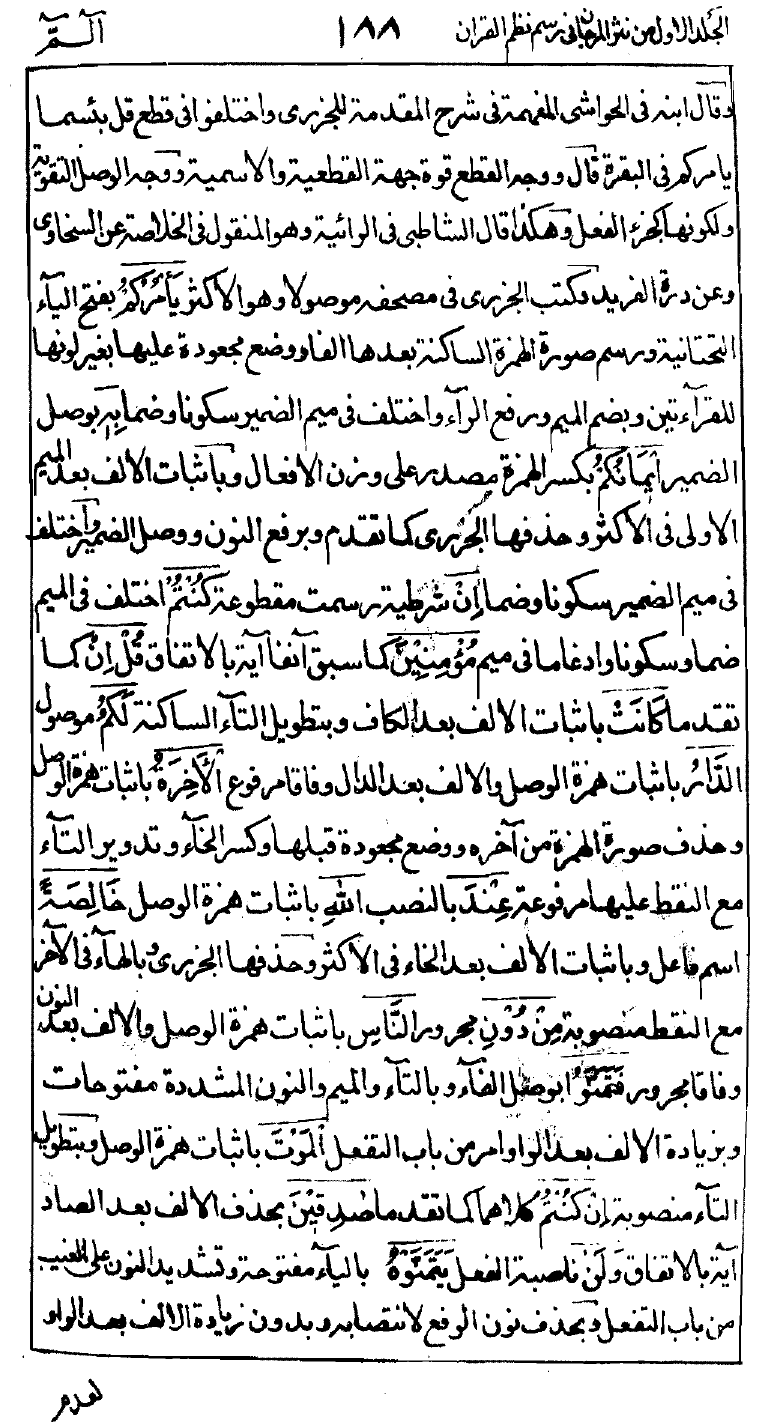 الجلد الاول من نثر المرجان فى رسم نظم القران ١٨٨ الٓـمّٓ
وقال ابنه فى الحواشى المفهمة فى شرح المقدمة للجزرى واختلفوا فى قطع قل بئسما
يامركم فى البقرة قال ووجه القطع قوة جهة القطعية والاسمية ووجه الوصل التقوية
ولكونها كجزء الفعل وهكذا قال الشاطبى فى الرائية وهو المنقول فى الخلاصة عن السخاوى
وعن درة الفريد وكتب الجزرى فى مصحفه موصولا وهو الاكثر يَأْمُرُكُمْ بفتح اليآء
التحتانية ورسم صورة الهمزة الساكنة بعدها الفا ووضع مجعودة عليها بغير لونها
للقرآءتين وبضم الميم ورفع الرآء واختلف فى ميم الضمير سكونا وضما بِهٖ بوصل
الضمير اِيْمَانُكُمْ بكسر الهمزة مصدر على وزن الافعال وباثبات الالف بعد الميم
الاولى فى الاكثر وحذفها الجزرى كما تقدم وبرفع النون ووصل الضمير واختلف
فى ميم الضمير سكونا وضما اِنْ شرطية رسمت مقطوعة كُنْتُمْ اختلف فى الميم
ضما وسكونا وادغاما فى ميم مُؤْمِنِيْنَ كما سبق آنفا آية بالاتفاق قُلْ اِنْ كما
تقدما كَانَتْ باثبات الالف بعد الكاف وبتطويل التآء الساكنة لَكُمُ موصول
الدَّارُ باثبات همزة الوصل والالف بعد الدال وفاقا مرفوع الْاٰخِرَةُ باثبات همزة الوصل
وحذف صورة الهمزة من آخره ووضع مجعودة قبلها وكسر الخآء وتدوير التآء
مع النقط عليها مرفوعة عِنْدَ بالنصب اللهِ باثبات همزة الوصل خَالِصَةً
اسم فاعل وباثبات الالف بعد الخاء فى الاكثر وحذفها الجزرى وبالهآء فى الآخر
مع النقط منصوبة مِنْ دُوْنِ مجرور النَّاسِ باثبات همزة الوصل والالف بعد النون
وفاقا مجرور فَتَمَنَّوُا بوصل الفآء وبالتآء والميم والنون المشددة مفتوحات
وبزيادة الالف بعد الواو امر من باب التفعل الْمَوْتَ باثبات همزة الوصل وبتطويل
التآء منصوبة اِنْ كُنْتُمْ كلاهما كما تقدما صٰدِقِيْنَ بحذف الالف بعد الصاد
آية بالاتفاق وَلَنْ ناصبة الفعل يَتَمَنَّوْهُ باليآء مفتوحة وتشديد النون على الغيب
من باب التفعل وبحذف نون الرفع لانتصابه وبدون زيادة الالف بعد الواو
لعدم